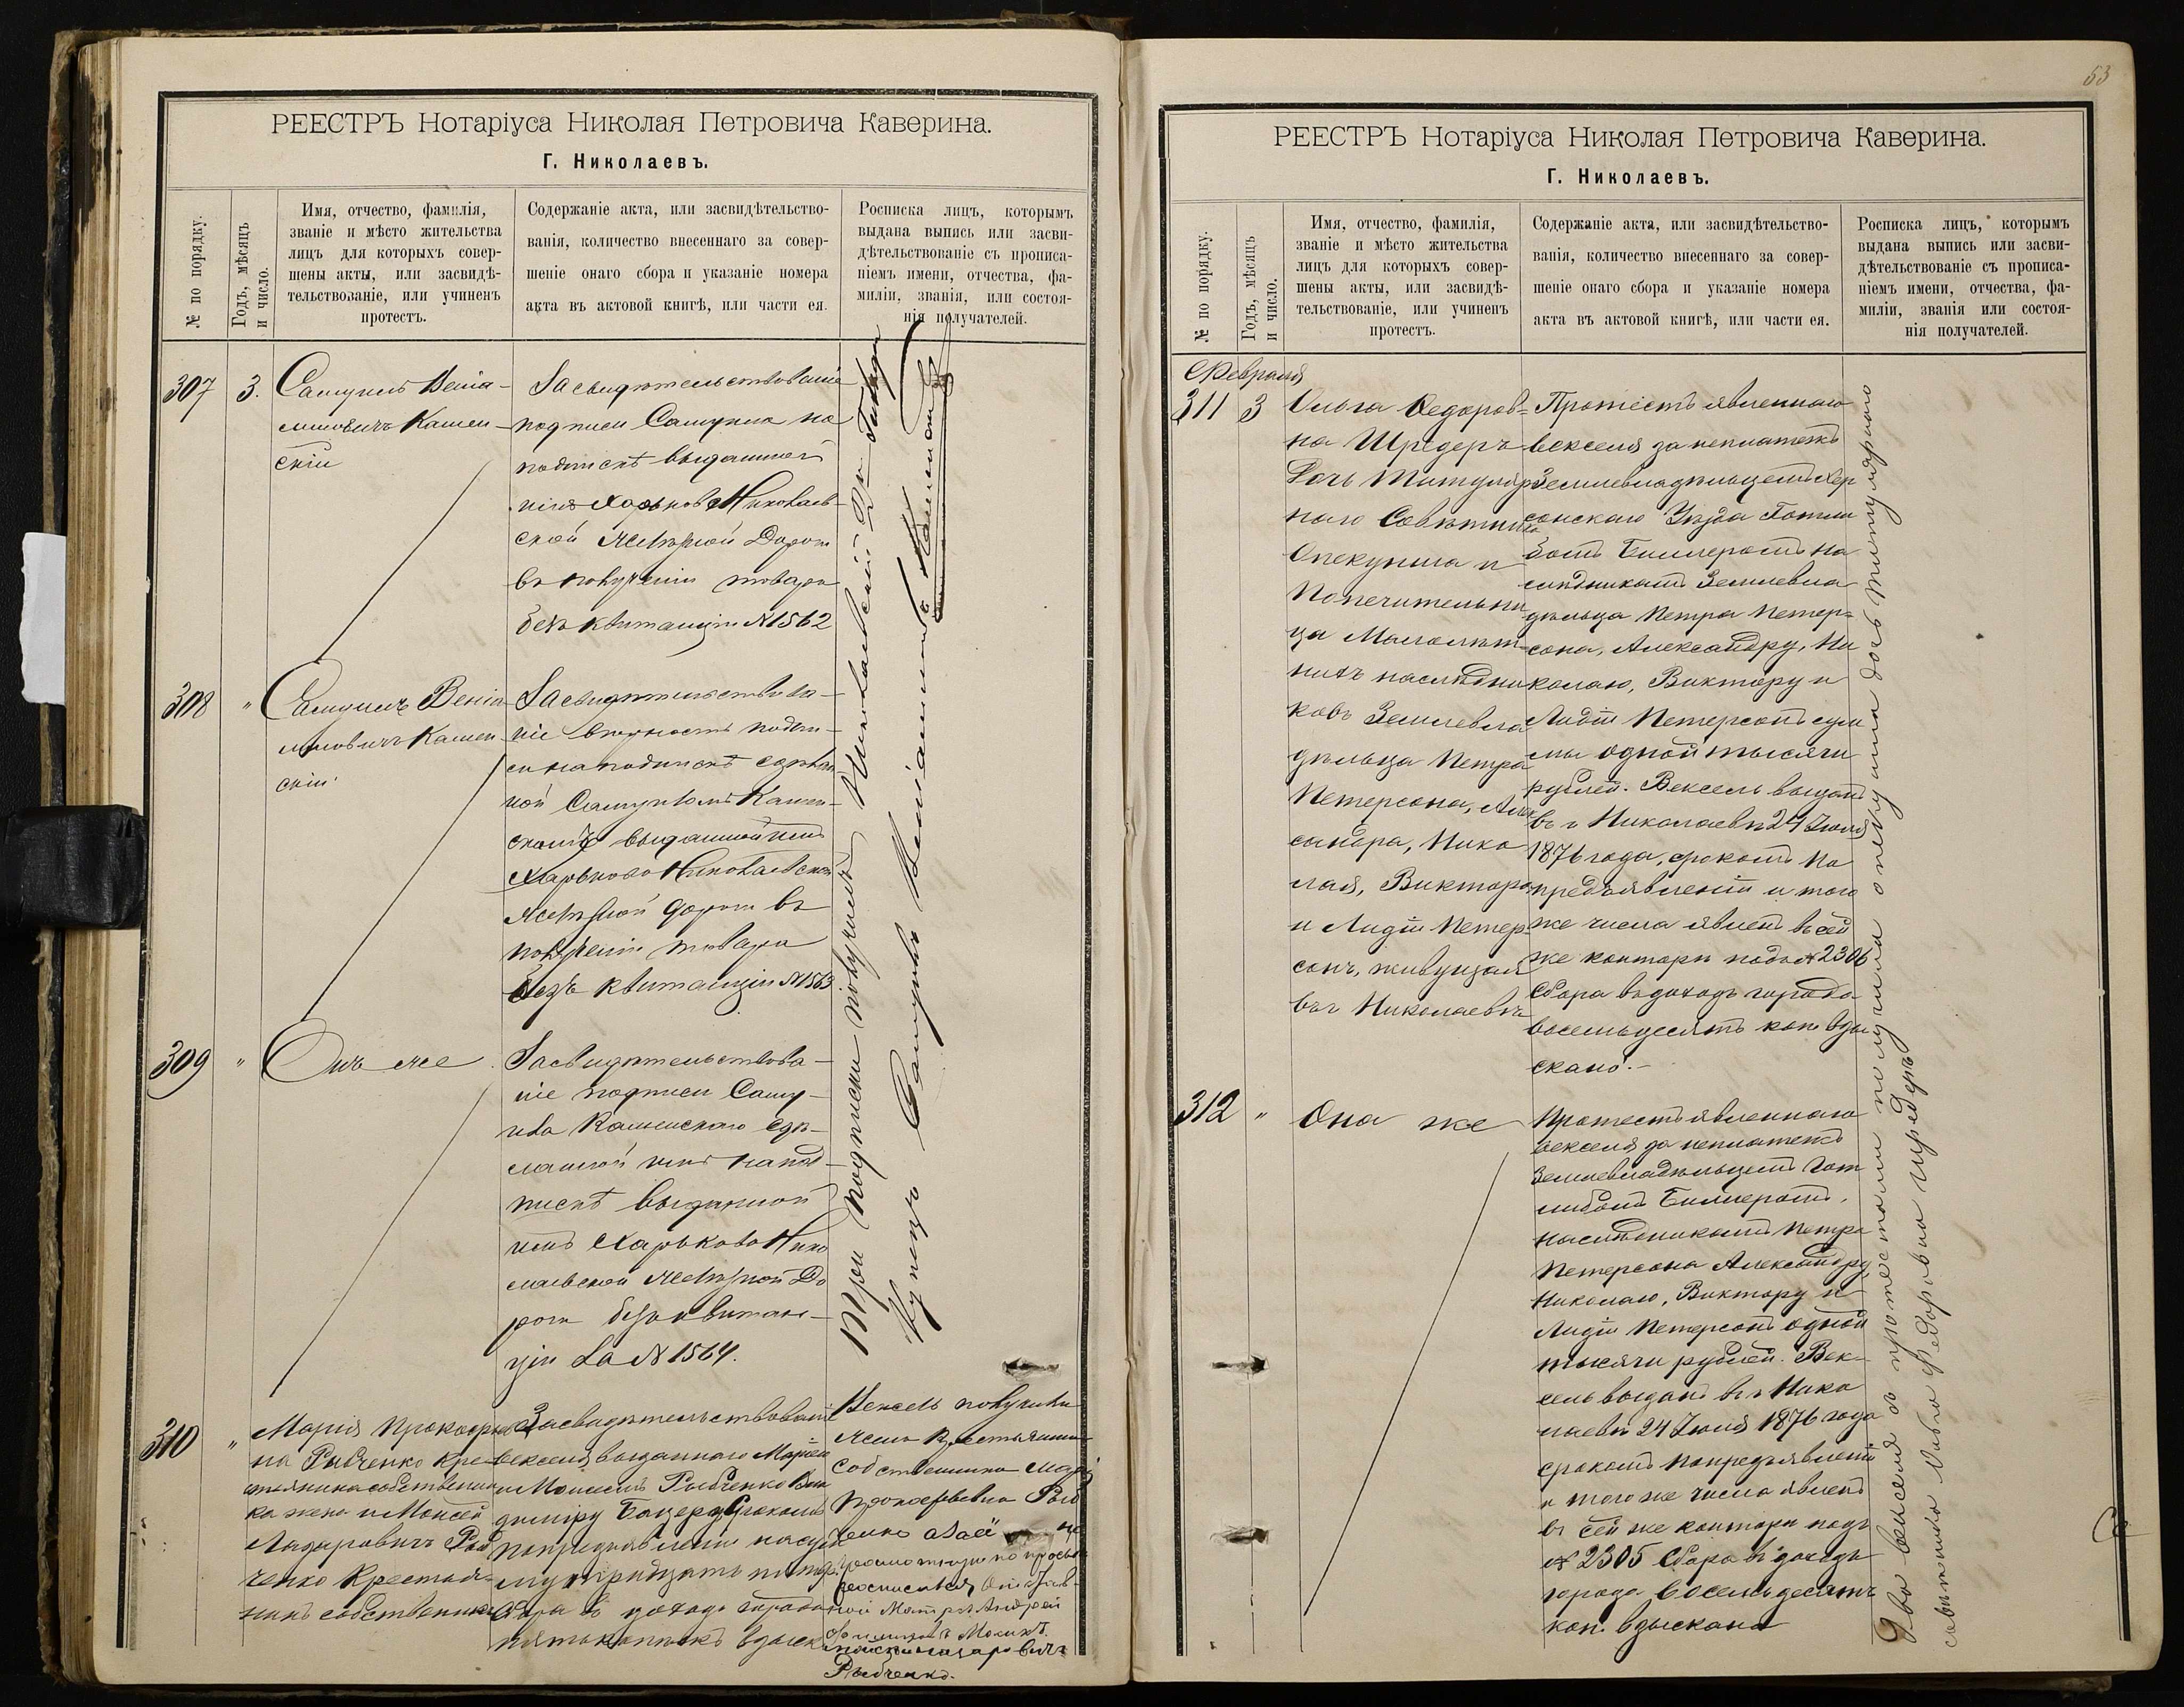 РЕЕСТРЪ Нотаріуса Николая Петровича Каверина.
Г. Николаевъ.
№ по порядку.
Годъ, мѣсяцъ
и число.
Имя, отчество, фамилія,
званіе и мѣсто жительства
лицъ для которыхъ совер-
шены акты, или засвидѣ-
тельствованіе, или учиненъ
протестъ.
Содержаніе акта, или засвидѣтельство-
ванія, количество внесеннаго за совер-
шеніе онаго сбора и указаніе номера
акта въ актовой книгѣ, или части ея.
Росписка лицъ, которымъ
выдана выпись или засви-
дѣтельствованіе съ прописа-
ніемъ имени, отчества, фа-
миліи, званія, или состоя-
нія получателей.
307
3.
Самуилъ Веніа-
миновичъ Камен-
скій
Засвидѣтельствованіе
подписи Самуила на
подпискѣ выданной
имъ Харьково Николаев-
ской Желѣзной Дороги
въ полученіи товара
безъ квитанціи №1562
308
"
Самуилъ Веніа
миновичъ Камен
скій
Засвидѣтельствова-
ніе вѣрность подпи-
си на подпискѣ сдѣлан
ной Самуиломъ Камен-
скимъ выданной имъ
Харьково Николаевской
Желѣзной дороги въ
полученіи товара
безъ квитанціи №1563.
309
"
Онъ же
Засвидѣтельствова-
ніе подписи Саму-
ила Каменскаго сдѣ-
ланной имъ на под-
пискѣ выданной
имъ Харьково Нико
лаевской Желѣзной До
роги безъ квитан-
ціи за №1564.
Три подписки получилъ Николаевскій 2й Гильдіи
Купецъ Самуилъ Веніаминовъ Каменскій
310
"
Марія Прокофьев
на Рябченко кре
стьянка собственни
ка жена и Моисей
Лазаровичъ Ряб
ченко Крестья-
нинъ собственникъ
Засвидѣтельствованіе
векселя выданнаго Маріею
и Моисеемъ Рябченко Вла
диміру Бацеру срокомъ
по предъявленіи на сум
му тридцать пять р.
Сбора въ доходъ города
пять копѣекъ взыск.
Вексель получили
жена Крестьянина
собственника Марія
Прокофьевна Ряб
ченко а за неё не
грамотную по просьбѣ
росписался
Матросъ Андрей
Моисей Лазаровичъ
Рябченко.
53
РЕЕСТРЪ Нотаріуса Николая Петровича Каверина.
Г. Николаевъ.
№ по порядку.
Годъ, мѣсяцъ
и число.
Имя, отчество, фамилія,
званіе и мѣсто жительства
лицъ для которыхъ совер-
шены акты, или засвидѣ-
тельствованіе, или учиненъ
протестъ.
Содержаніе акта, или засвидѣтельство-
ванія, количество внесеннаго за совер-
шеніе онаго сбора и указаніе номера
акта въ актовой книгѣ, или части ея.
Росписка лицъ, которымъ
выдана выпись или засви-
дѣтельствованіе съ прописа-
ніемъ имени, отчества, фа-
миліи, званія или состоя-
нія получателей.
Февраля
311
3
Ольга Федоров-
на Шредеръ
Дочь Титуляр
наго Совѣтника
Опекунша и
Попечительни
ца Малолѣт
нихъ наслѣдни
ковъ Землевла
дѣльца Петра
Петерсона, Алек
сандра, Нико
лая, Виктора
и Лидіи Петер-
сонъ, живущая
въ г. Николаевѣ
Протестъ явленнаго
векселя за неплатежъ
Землевладѣльцемъ Хер
сонскаго Уѣзда Готли
бомъ Биллеромъ на
слѣдникамъ Землевла
дѣльца Петра Петер-
сона, Александру, Ни
колаю, Виктору и
Лидіи Петерсонъ сум
мы одной тысячи
рублей. Вексель выданъ
въ г Николаевѣ 24 Іюля
1876 года, срокомъ по
предъявленіи и того
же числа явленъ въ сей
же конторѣ подъ №2306
Сбора въ доходъ города
восемьдесятъ коп. взы
скано.-
312
"
Она же
Протестъ явленнаго
векселя за неплатежъ
Землевладѣльцемъ Гот
либомъ Биллеромъ,
наслѣдникамъ Петра
Петерсона Александру,
Николаю, Виктору и
Лидіи Петерсонъ одной
тысячи рублей. Век-
сель выданъ въ г Нико
лаевѣ 24 Іюля 1876 года
срокомъ по предъявленіи
и того же числа явленъ
въ сей же конторѣ подъ
№ 2305 Сбора въ доходъ
города восемьдесятъ
коп. взыскано
Два векселя съ протестами получила опекунша дочь титулярнаго
совѣтника Ольга Федоровна Шредеръ